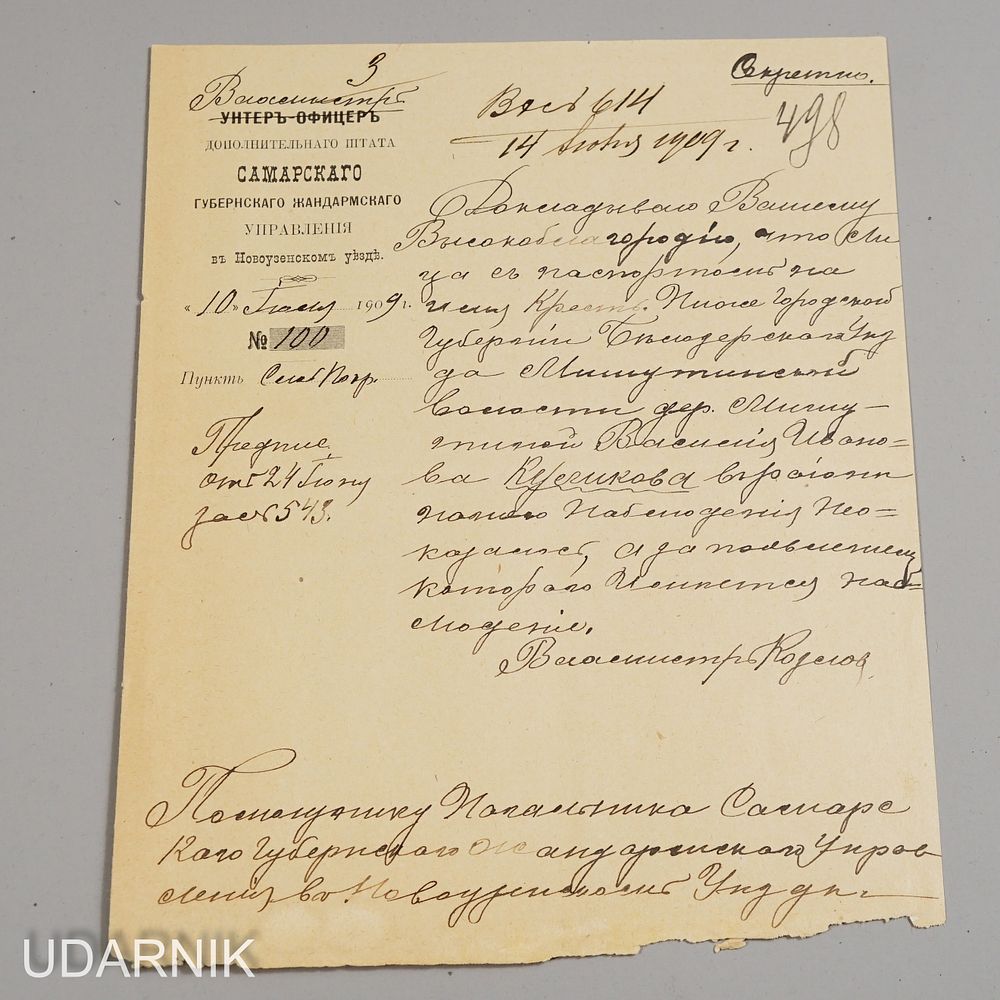 3
Секретно.
Вахмистръ
УНТЕРЪ-ОФИЦЕРЪ
ДОПОЛНИТЕЛЬНАГО ШТАТА
САМАРСКАГО
ГУБЕРНСКАГО ЖАНДАРМСКАГО
УПРАВЛЕНІЯ
въ Новоузенскомъ уѣздѣ.
«10» Іюля 1909 г.
№ 100
Пунктъ Слоб Покр.
Предпис.
отъ 24 Іюня
за № 543.
614
14 Іюля 1909 г.
498
Докладываю Вашему
Высокоблагородію, что Ли
ца съ паспортомъ на
имя Крест. Ниже Городской
Губерніи
да Мишутинской
волости дер. Мишу-
тиной Василія Ивано-
ва Кусчикова въ раіони
моего Наблюденія Не о-
казалось, а за появленіемъ
котораго Имеится наб-
людение.
Вахмистръ Козлов
Помощнику Начальника Самарс
Каго Губернского Жандармскаго Управ
ления въ Новоузенскомъ Уездъ
UDARNIK